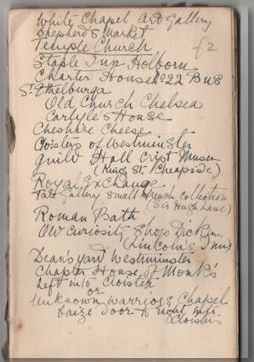 White Chapel Art Gallery
Shepherd's Market
Temple Church
Staple Inn Holborn
Charter House 22 Bus
St Ethelburga
Old Church Chelsea
Carlyle's House
Cheshire Cheese
Cloisters of Westminster
Guild Hall Cript Museum
(King St. Cheapside)
Royal Exchange
Tate Gallery small French collection
(Sir Hugh Lane)
Roman Bath
Old Curiosity Shop Dickens
(Lincoln's Inn)
Deansyard Westminster
Chapter House of Monks
left into Cloister
or
Unknown Warriors Chapel
baize door to right into
Cloisters